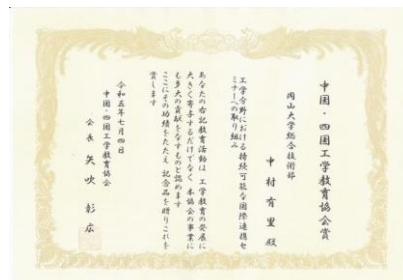 中国・四国工学教育協会賞
岡山大学総合技術部
中村有里殿
工学分野における持続可能な国際連携セ
ミナーへの取り組み
あなたの右記教育活動は工学教育の発展に
大きく寄与するだけでなく本協会の事業に
も多大の貢献をなすものと認めます
ここにその功績をたたえ記念品を贈りこれを
賞します
令和五年七月四日
中国・四国工学教育協会
会長 矢吹彰広